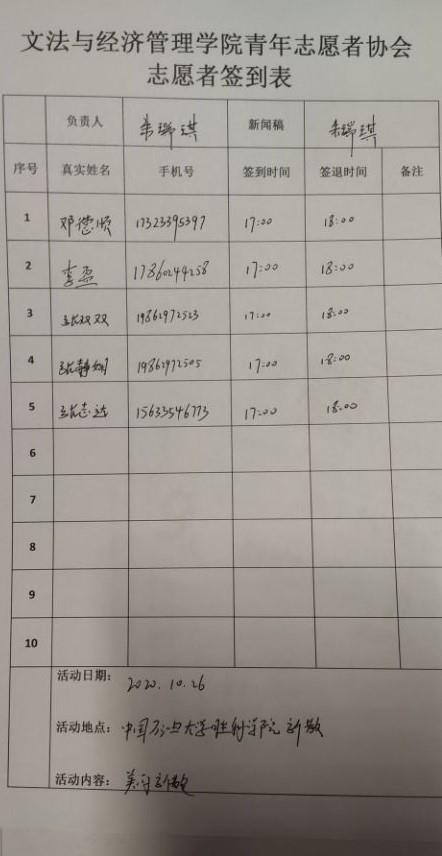 文法与经济管理学院青年志愿者协会
志愿者签到表
负责人 朱瑞琪 新闻稿 朱瑞琪
序号 真实姓名 手机号 签到时间 签退时间 备注
1 邓德顺 17323395397 17:00 18:00
2 李盈 17860244258 17:00 18:00
3 张双双 19862972523 17:00 18:00
4 张静 19862972505 17:00 18:00
5 张志达 15633546773 17:00 18:00
6
7
8
9
10
活动日期: 2020.10.26
活动地点: 中国石油大学胜利学院新教
活动内容: 美守新教